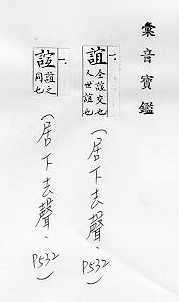 彙音寶鑑
一、
誼 仝誼交也
人世誼也
（居下去聲、P532）
一、
誼之
同也
（居下去聲、P532）